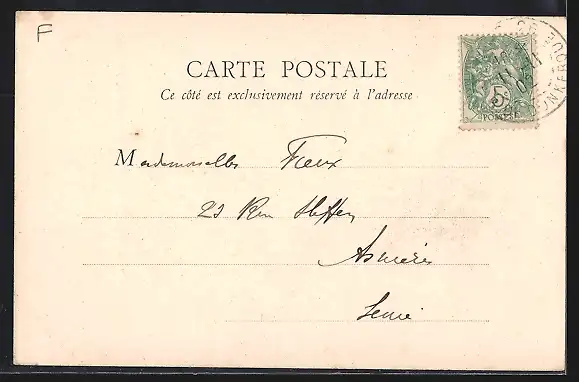 F
CARTE POSTALE
Ce côté est exclusivement réservé à l'adresse
5
Mademoiselles Fieux
23 Rue Steffen
Asnières
Seine